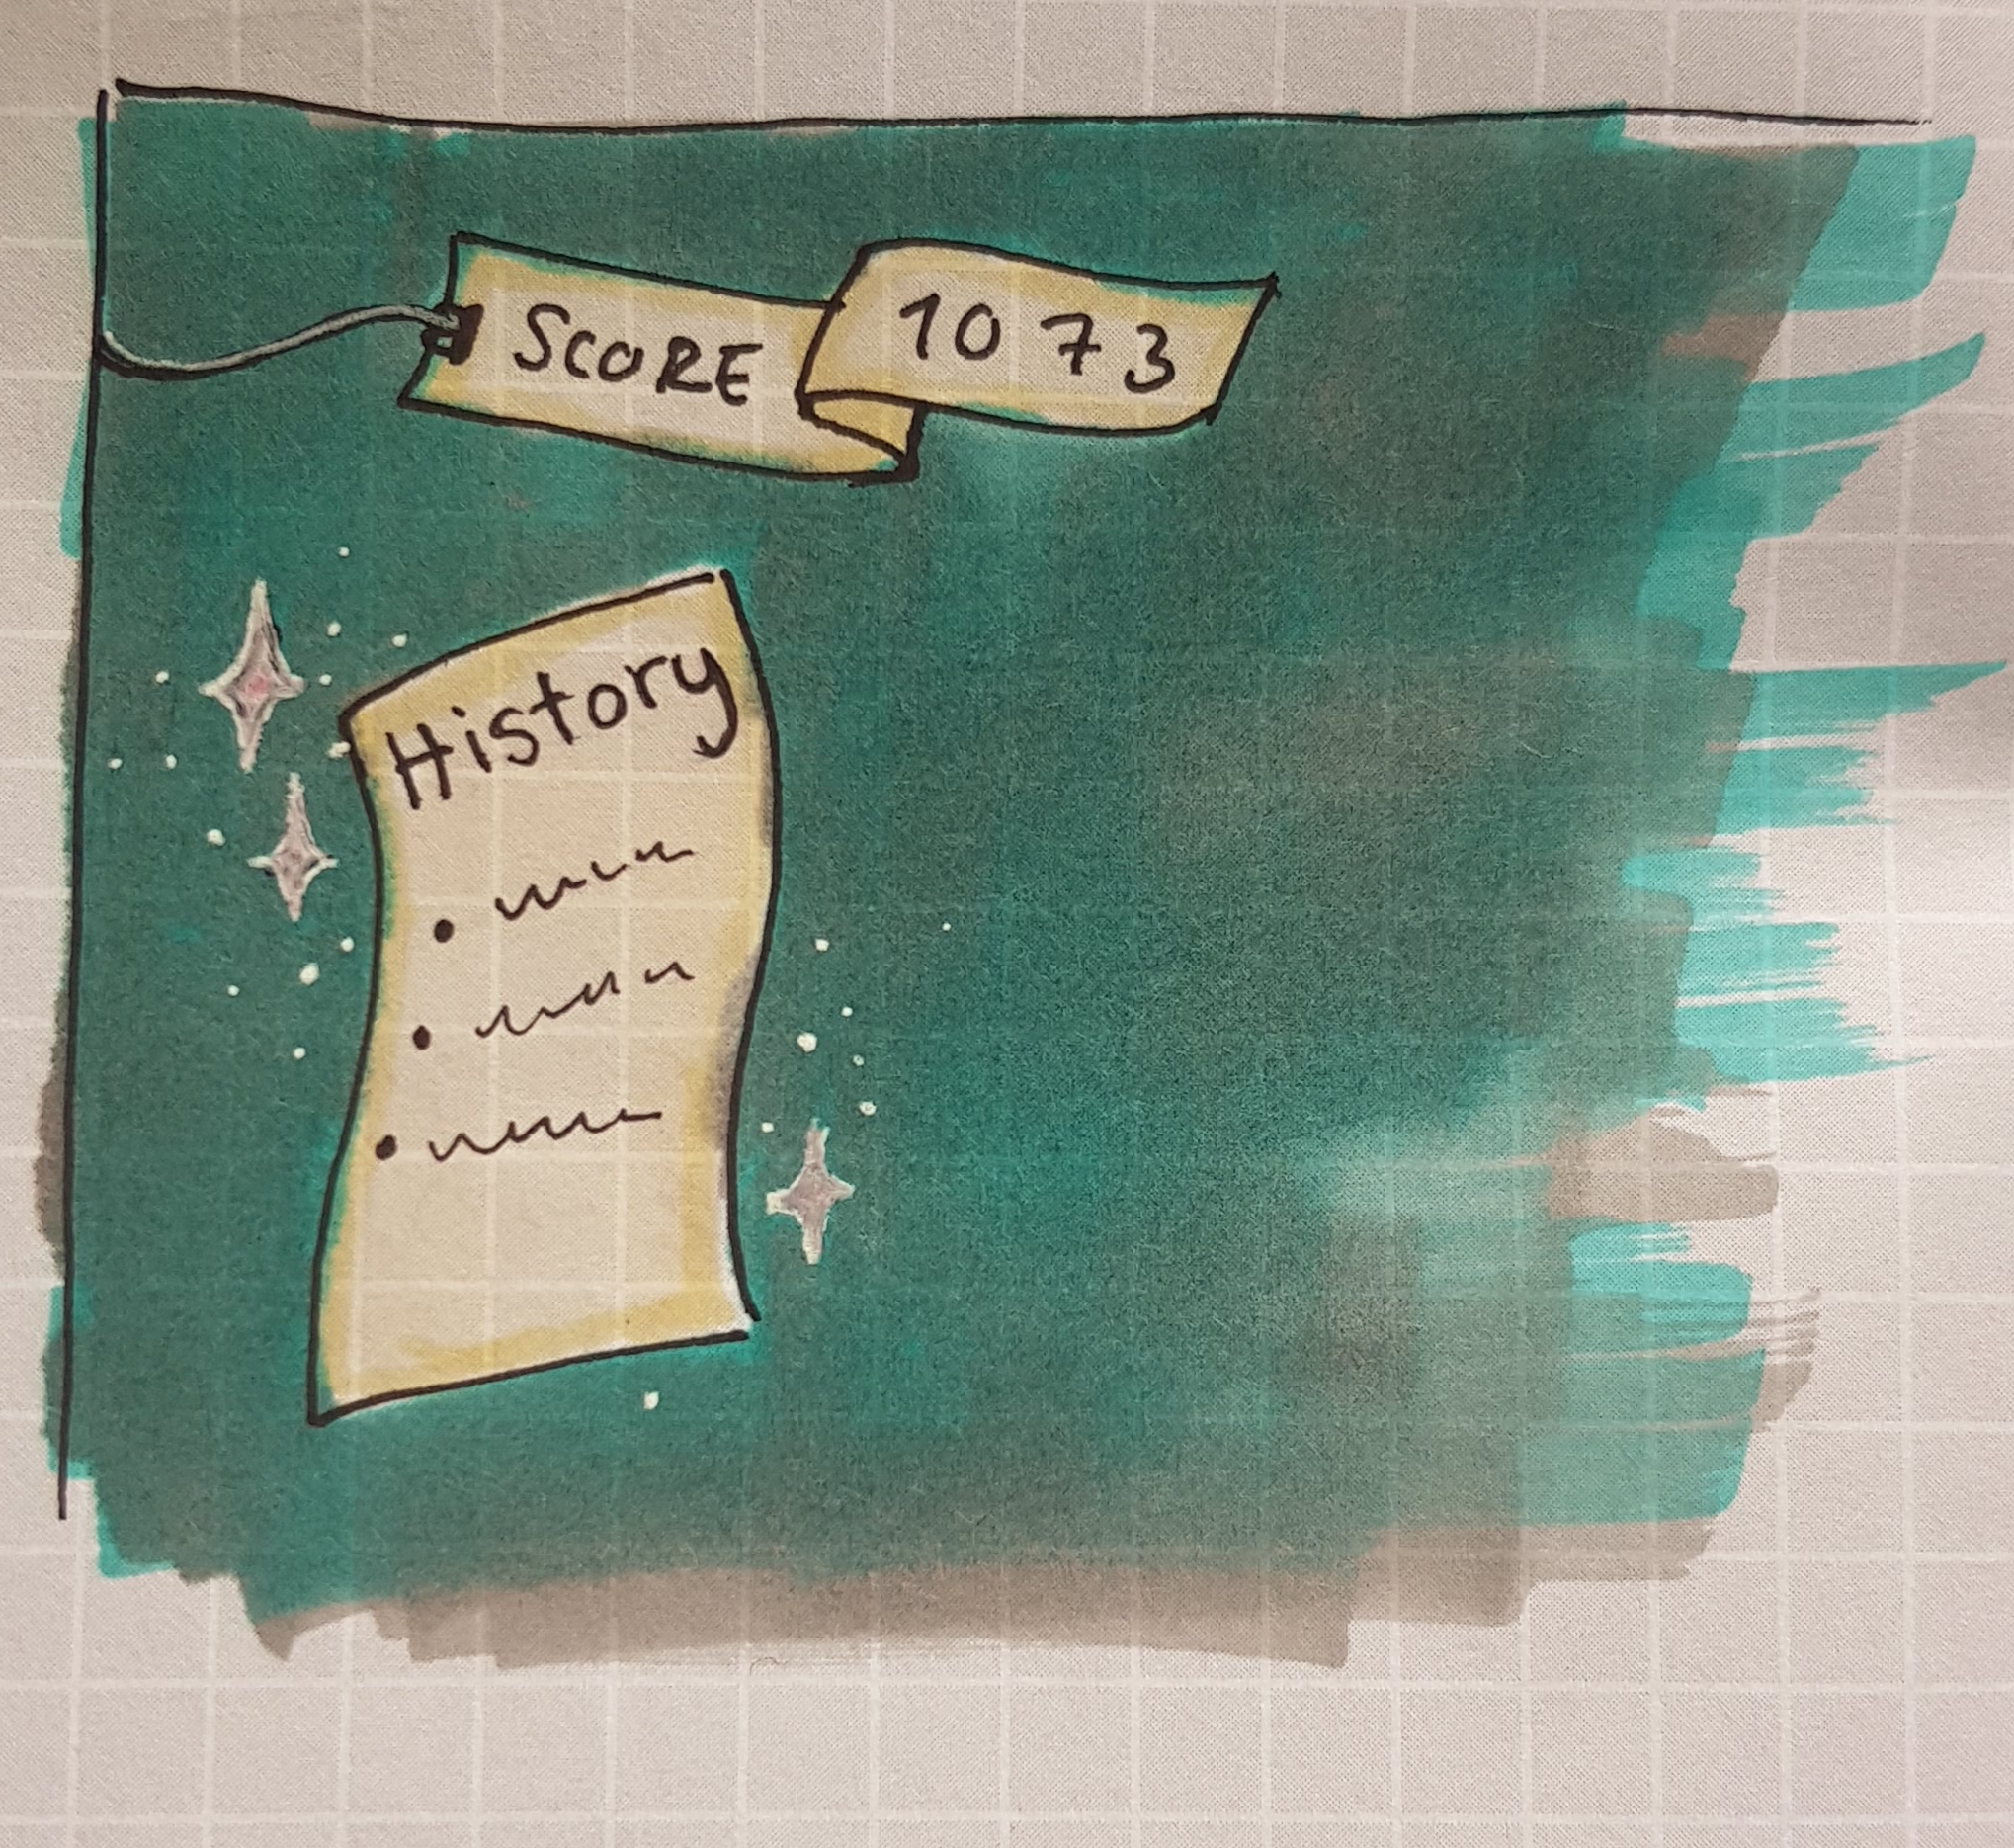 SCORE 1073
History